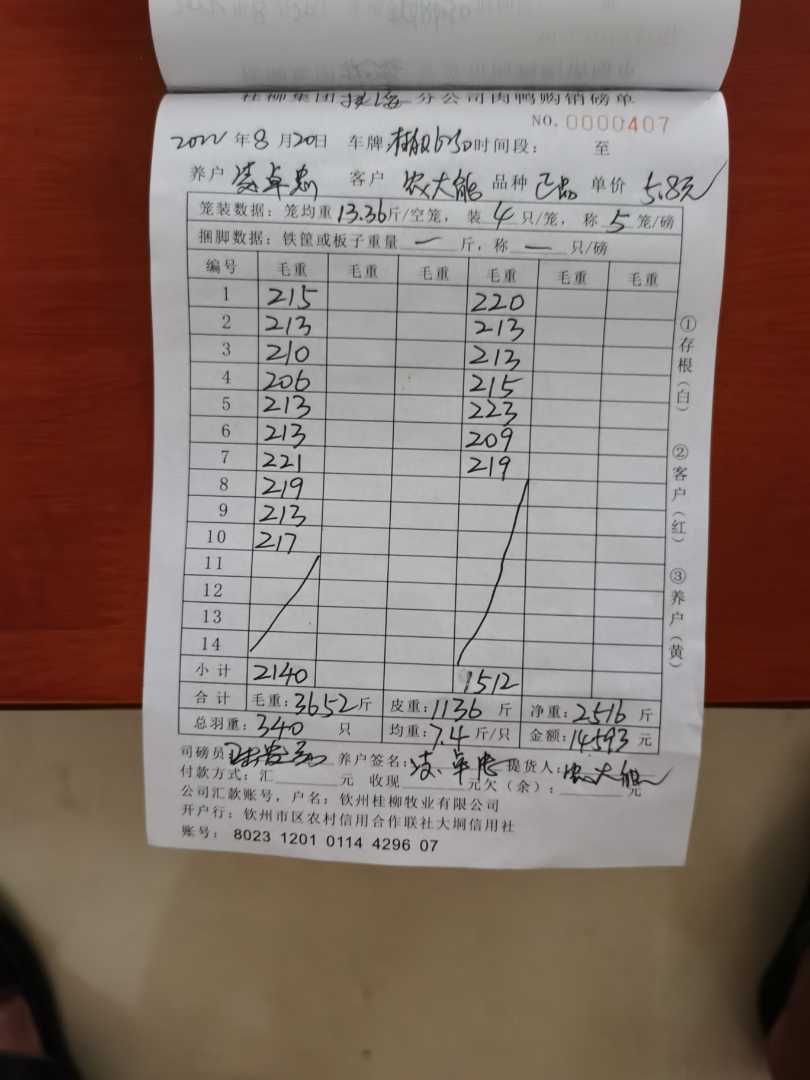 桂柳集团 分公司肉鸭购销磅单
NO. 0000407
2022年8月20日 车牌 时间段： 至
养户 凌卓忠 客户 农大能 品种 单价 5.8元
笼装数据：笼均重13.36斤/空笼，装4只/笼，称5笼/磅
捆脚数据：铁筐或板子重量一斤，称一只/磅
编号 毛重 毛重 毛重 毛重 毛重 毛重
1 215 220
2 213 213
3 210 213
4 206 215
5 213 223
6 213 209
7 221 219
8 219
9 213
10 217
11
12
13
14
小计 2140 1512
合计 毛重：3652斤 皮重：1136斤 净重：2516斤
总羽重：340只 均重：7.4斤/只 金额：14593元
司磅员 养户签名：凌卓忠 提货人：农大能
付款方式：汇 元 收现 元欠（余）： 元
公司汇款账号，户名：钦州桂柳牧业有限公司
开户行：钦州市区农村信用合作联社大垌信用社
账号：8023 1201 0114 4296 07
①存根（白）
②客户（红）
③养户（黄）